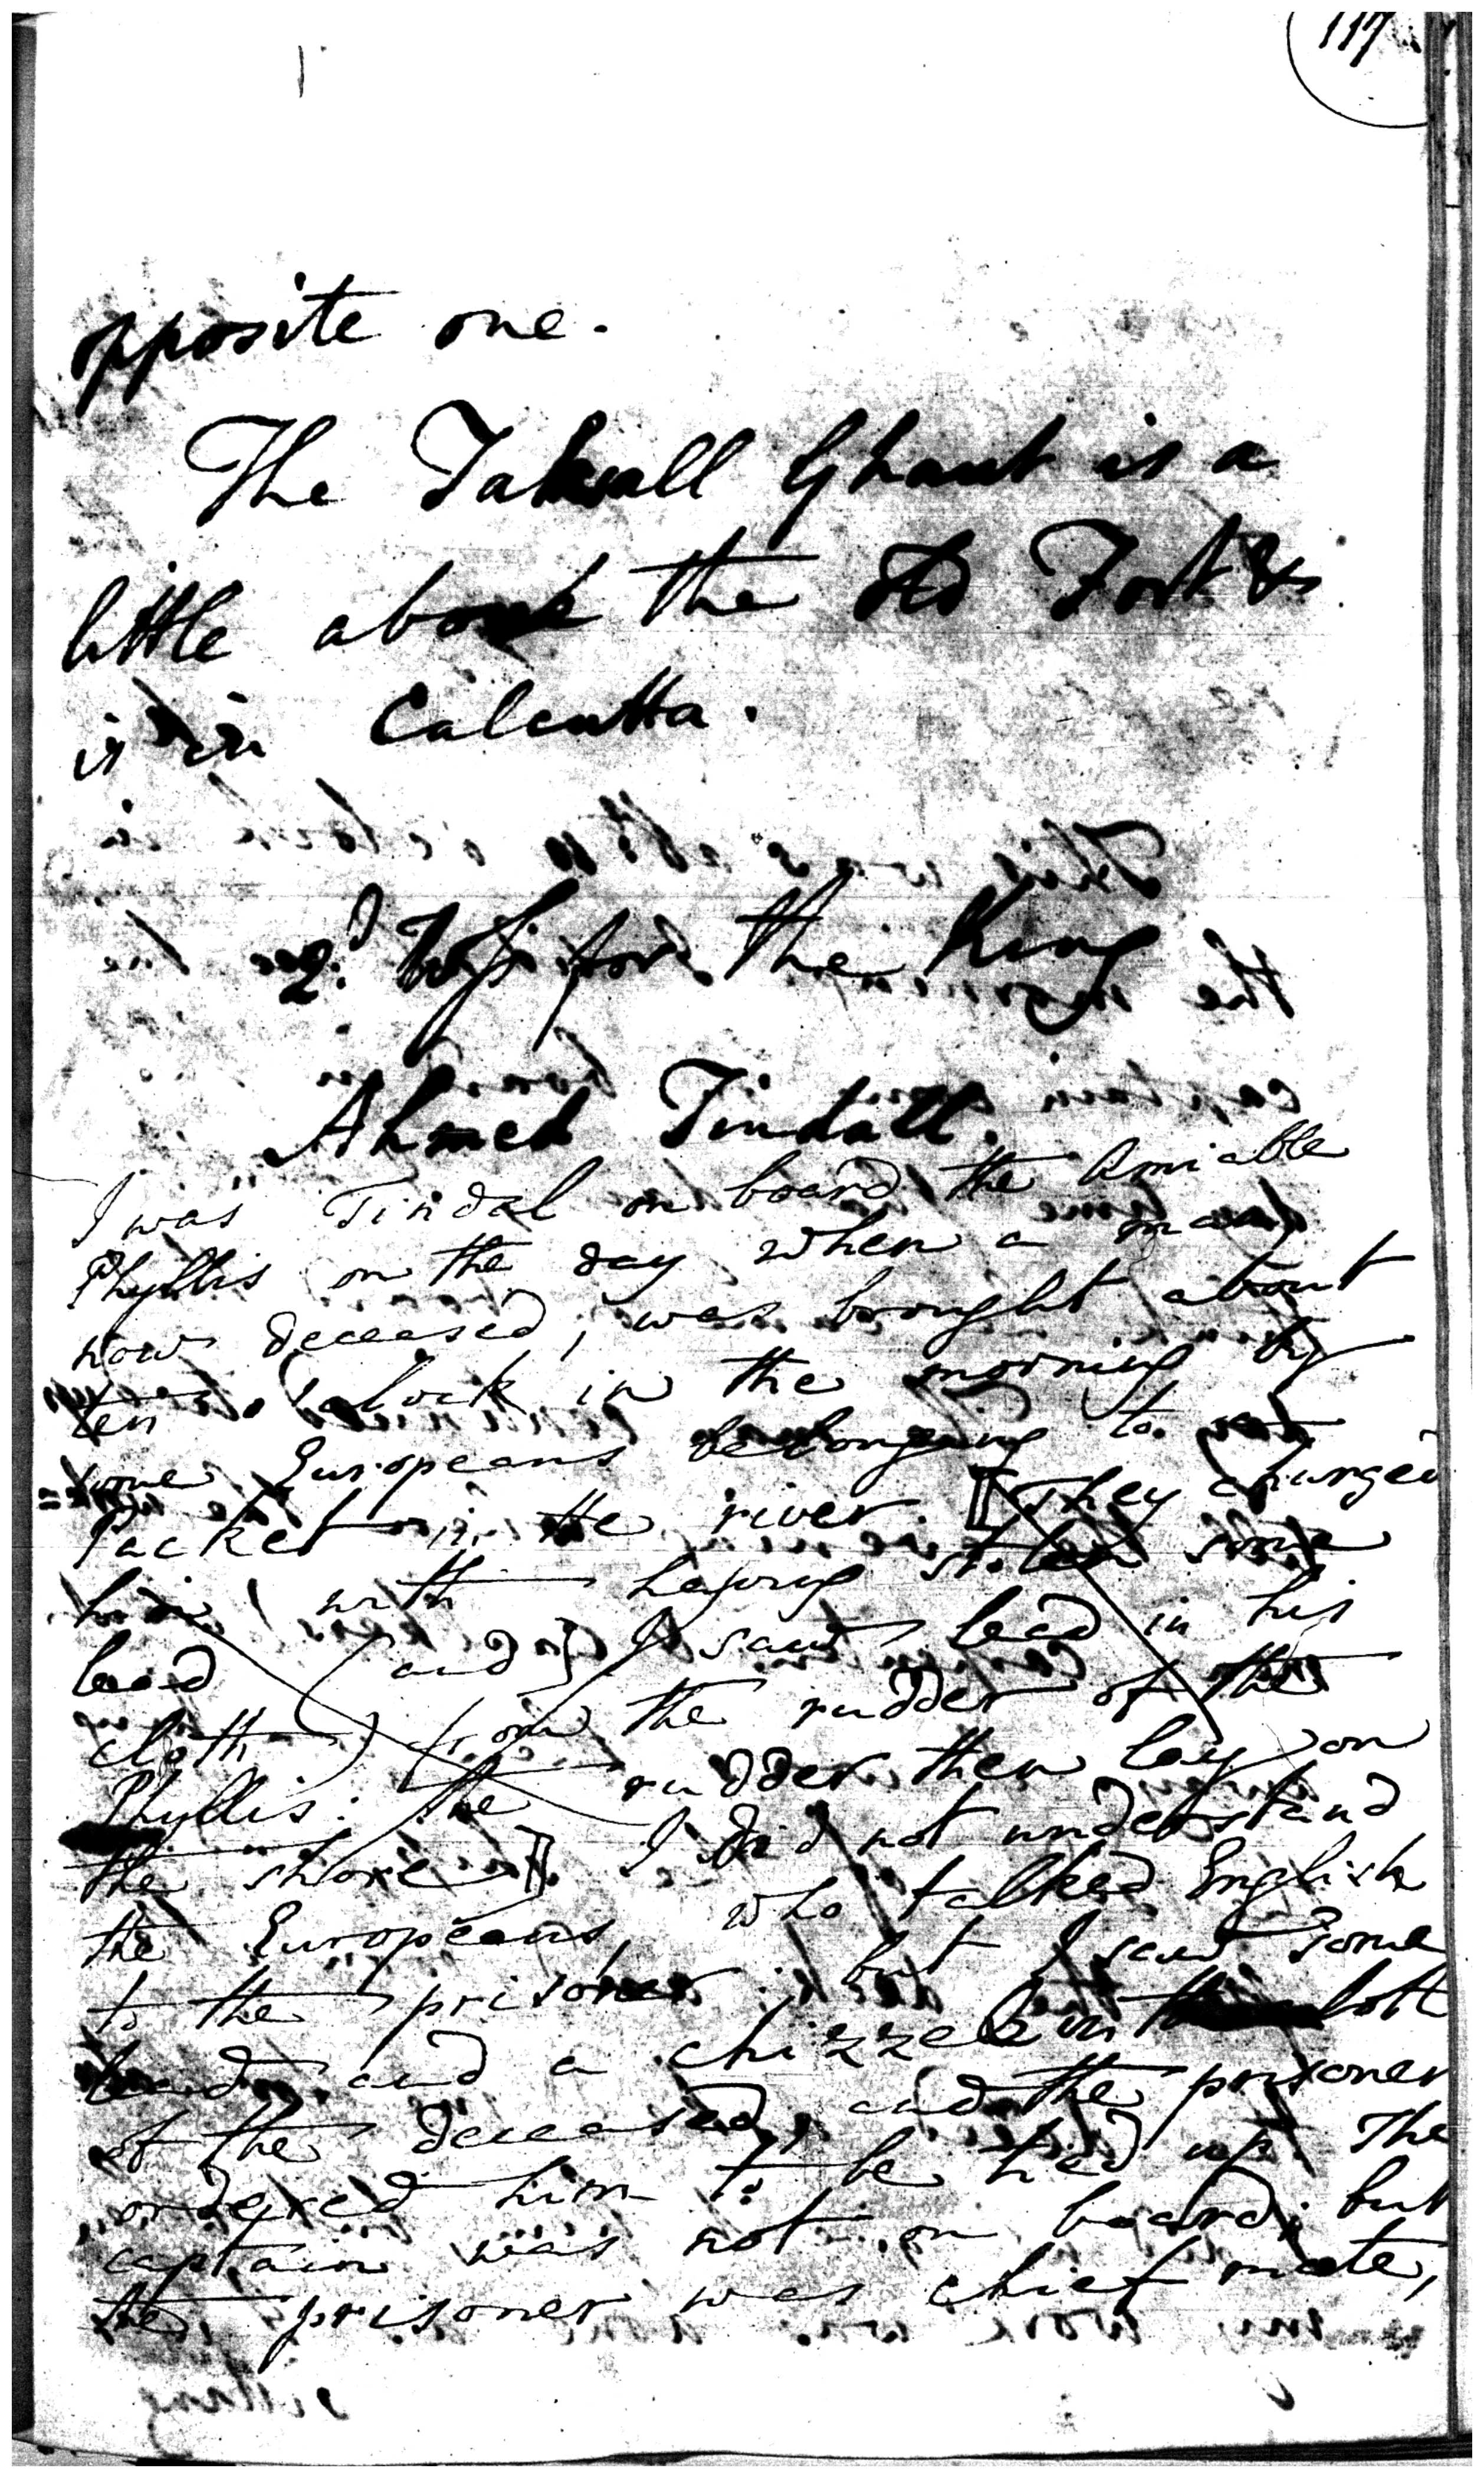 117
opposite one.
The Taksall Ghaut is a
little above the old Fort &
is in Calcutta.
2d. Wits for the King
Ahmed Tindall.
I was Tindal on board the Amiable
Phyllis on the day when a man
now deceased, was brought about
ten o'clock in the morning by
some Europeans belonging to
Packet in the river. [They charged
him with having stolen some
lead (and I saw lead in his
cloth) from the rudder of the
Phyllis: the rudder then lay on
the shore]. I did not understand
the Europeans, who talked English
to the prisoner; but I saw some
lead and a chizzel in cloth
of the deceased, and the prisoner
ordered him to be tied up. The
captain was not on board; but
the prisoner was chief mate,